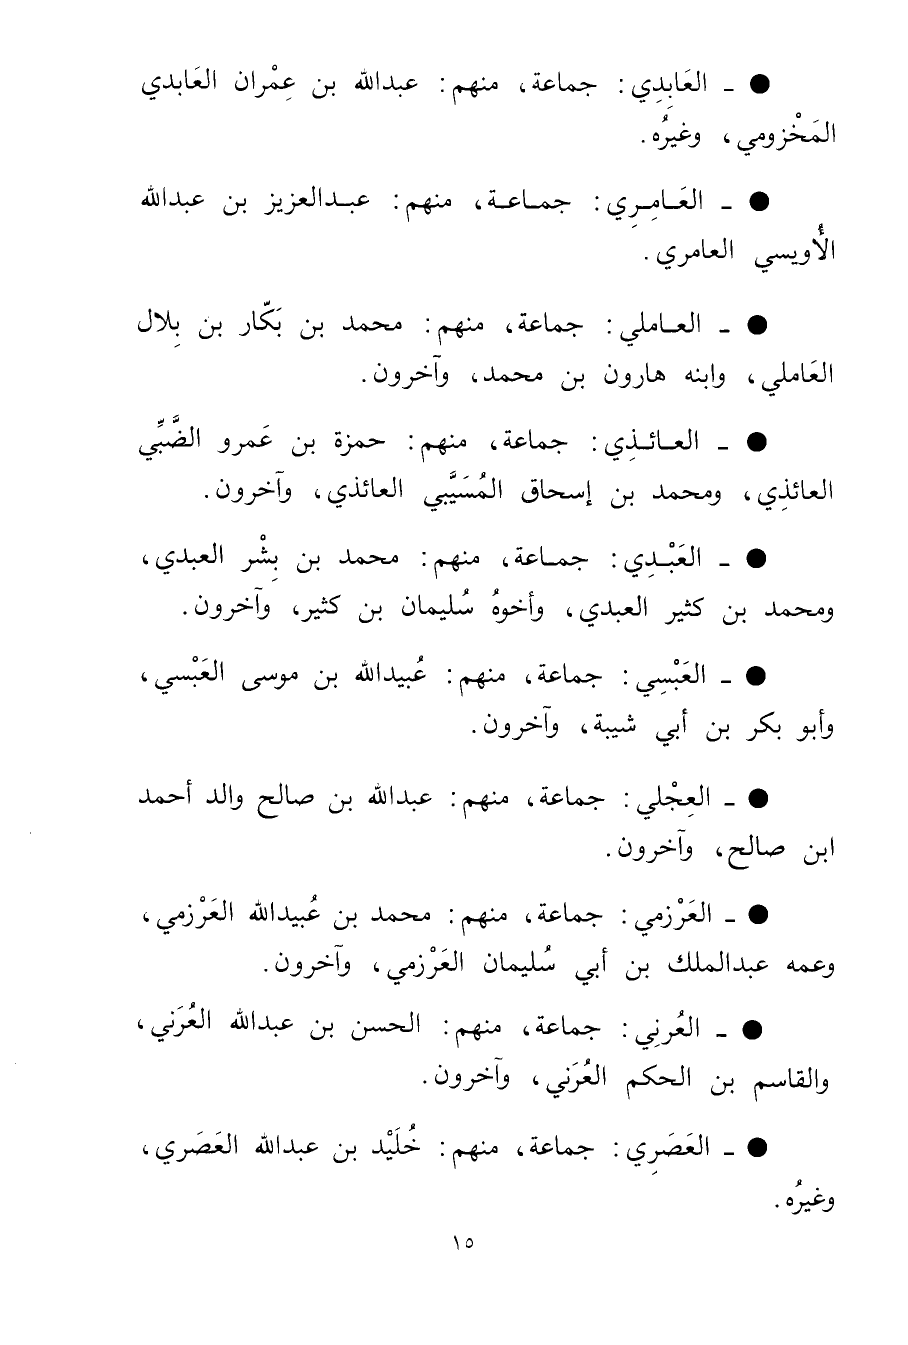 ● ـ العَابِدِي: جماعة، منهم: عبدالله بن عِمْران العَابدي
المَخْزومي، وغيرُه.
● ـ العَـامِـرِي: جمـاعـة، منهم: عبـدالعزيز بن عبدالله
الأُويسي العامري.
● ـ العـاملي: جماعة، منهم: محمد بن بَكّار بن بِلال
العَاملي، وابنه هارون بن محمد، وآخرون.
● ـ العـائـذِي: جماعة، منهم: حمزة بن عَمرو الضَّبِّي
العائذِي، ومحمد بن إسحاق المُسَيَّبي العائذي، وآخرون.
● ـ العَبْـدِي: جمـاعة، منهم: محمد بن بِشْر العبدي،
ومحمد بن كثير العبدي، وأخوهُ سُليمان بن كثير، وآخرون.
● ـ العَبْسِي: جماعة، منهم: عُبيدالله بن موسى العَبْسي،
وأبو بكر بن أبي شيبة، وآخرون.
● ـ العِجْلي: جماعة، منهم: عبدالله بن صالح والد أحمد
ابن صالح، وآخرون.
● ـ العَرْزمي: جماعة، منهم: محمد بن عُبيدالله العَرْزمي،
وعمه عبدالملك بن أبي سُليمان العَرْزمي، وآخرون.
● ـ العُرنِي: جماعة، منهم: الحسن بن عبدالله العُرَني،
والقاسم بن الحكم العُرَني، وآخرون.
● ـ العَصَرِي: جماعة، منهم: خُلَيْد بن عبدالله العَصَري،
وغيرُه.
١٥